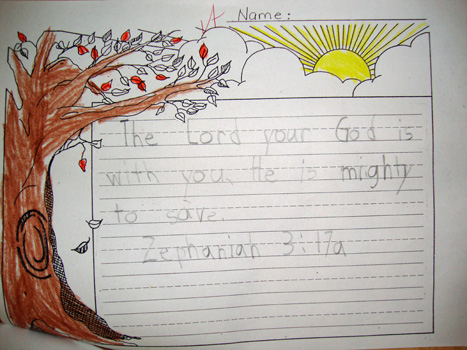 A
Name:
The Lord your God is
with you. He is mighty
to save.
Zephaniah 3:17a